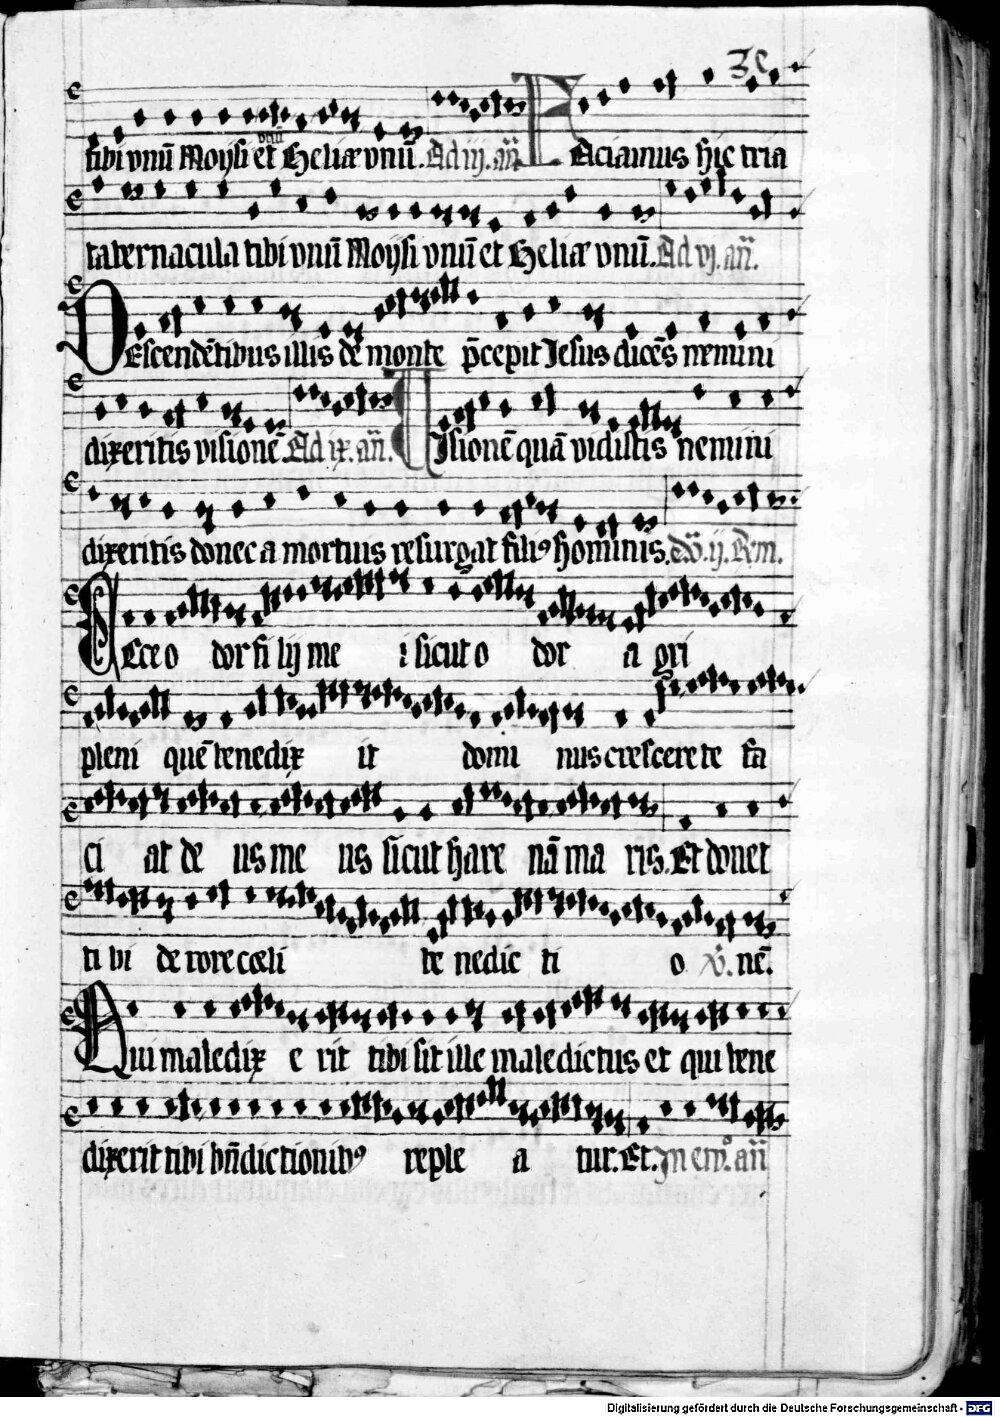 3c
unū
tibi unū Moysi et Heliæ unū. Ad iij. añ Faciamus hic tria
tabernacula tibi unū Moysi unū et Heliæ unū. Ad vj. añ.
Descendētibus illis de monte p̄cepit Jesus dicēs nemini
dixeritis visionē. Ad ix. añ. Visionē quā vidistis nemini
dixeritis donec a mortuis resurgat filiꝰ hominis. Dō. ij. Rem.
Ecce odor filij me i sicut odor agri
pleni quē benedixit dominus crescere te fa
ciat deus meus sicut harenā maris. Et donet
tibi de rore cœli benedictio . nē.
Qui maledixerit tibi sit ille maledictus et qui bene
dixerit tibi bñdictionibꝰ repleatur. Et. In em. añ
Digitalisierung gefördert durch die Deutsche Forschungsgemeinschaft - DFG